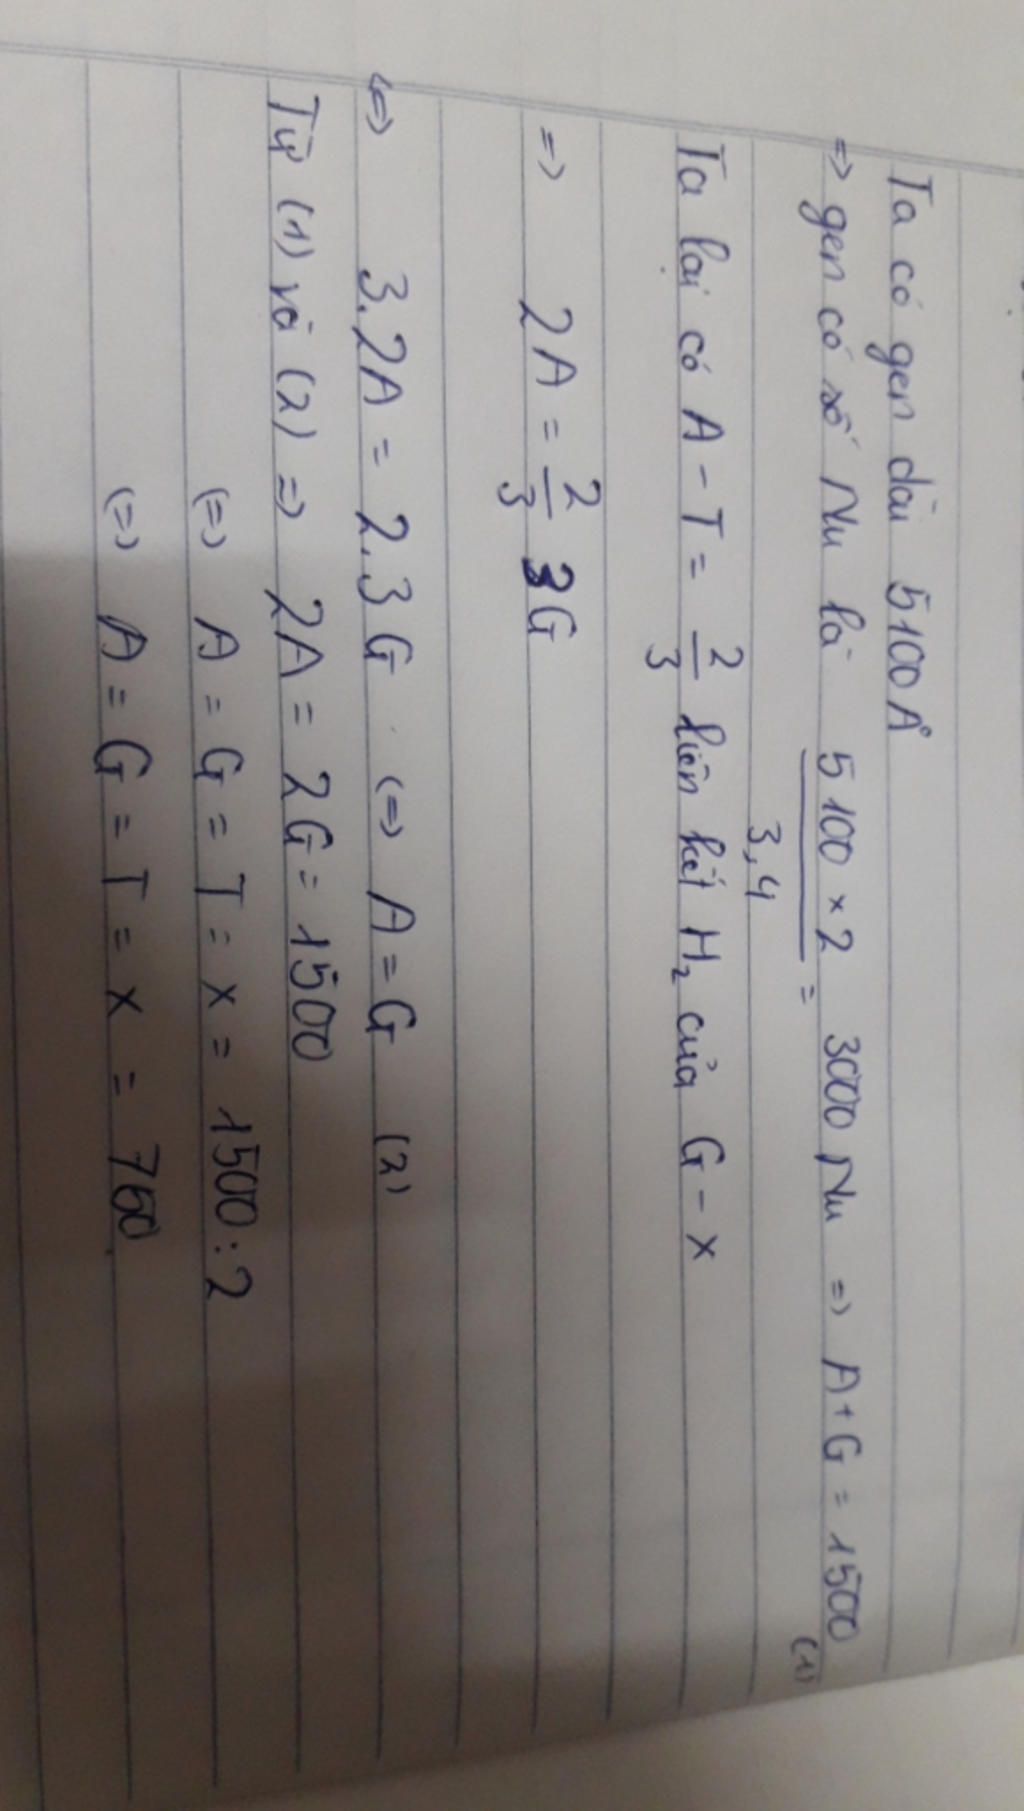 Ta có gen dài 5100 Å
=> gen có số Nu là 5100 × 2 / 3,4 = 3000 Nu => A + G = 1500 (1)
Ta lại có A - T = 2/3 liên kết H₂ của G - X
=> 2A = 2/3 3G
<=> 3.2A = 2.3G <=> A = G (2)
Từ (1) và (2) => 2A = 2G = 1500
<=> A = G = T = X = 1500 : 2
<=> A = G = T = X = 750